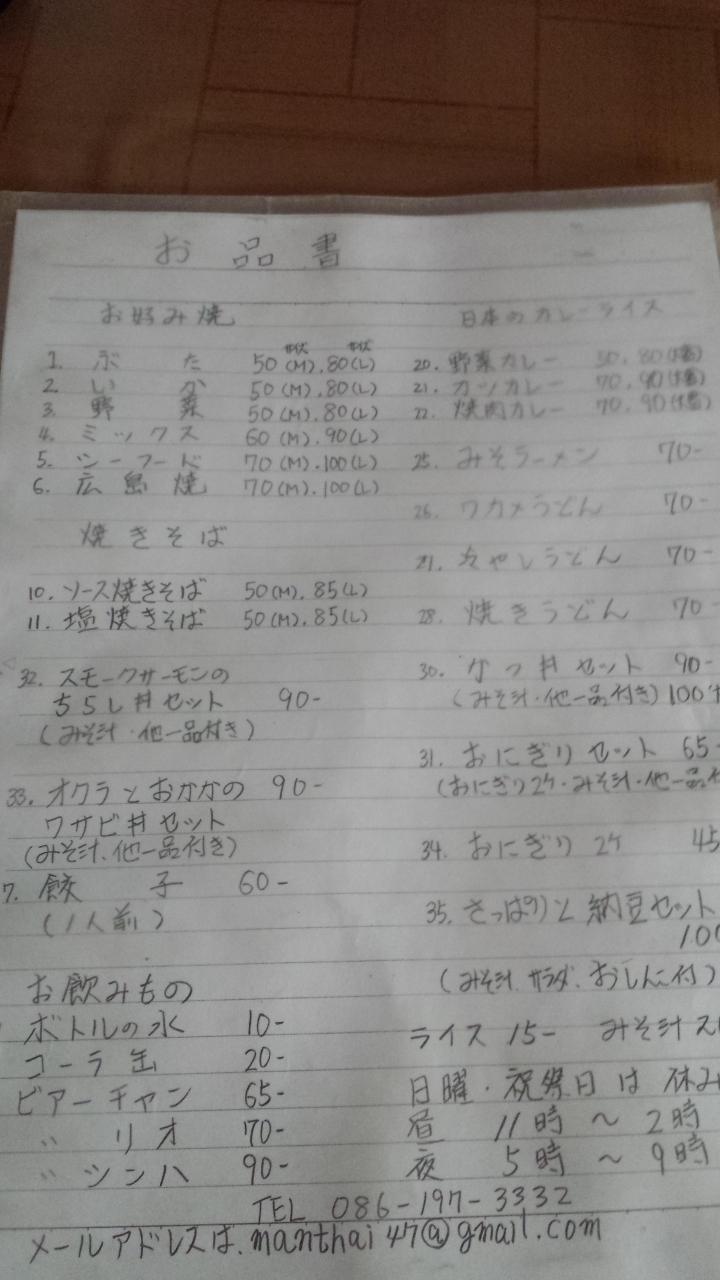 お品書
お好み焼
サイズ サイズ
1. ぶた 50(M).80(L)
2. いか 50(M).80(L)
3. 野菜 50(M).80(L)
4. ミックス 60(M).90(L)
5. シーフード 70(M).100(L)
6. 広島焼 70(M).100(L)
焼きそば
10. ソース焼きそば 50(M).85(L)
11. 塩焼きそば 50(M).85(L)
32. スモークサーモンの
ちらし丼セット 90-
(みそ汁・他一品付き)
33. オクラとおかかの 90-
ワサビ丼セット
(みそ汁.他一品付き)
7. 餃子 60-
(1人前)
お飲みもの
ボトルの水 10-
コーラ缶 20-
ビアーチャン 65-
〃 リオ 70-
〃 シンハ 90-
日本のカレーライス
20. 野菜カレー 50.80
21. カツカレー 70.90
22. 焼肉カレー 70.90
25. みそラーメン 70-
26. ワカメうどん 70-
27. 冷やしうどん 70-
28. 焼きうどん 70-
30. かつ丼セット 90-
(みそ汁・他一品付き) 100
31. おにぎりセット 65-
(おにぎり2ケ・みそ汁・他一品付
34. おにぎり 2ケ 45
35. さっぱりと納豆セット
100
(みそ汁.サラダ.おしんこ付)
ライス 15- みそ汁
日曜・祝祭日は休み
昼 11時〜2時
夜 5時〜9時
TEL 086-197-3332
メールアドレスは.manthai47@gmail.com